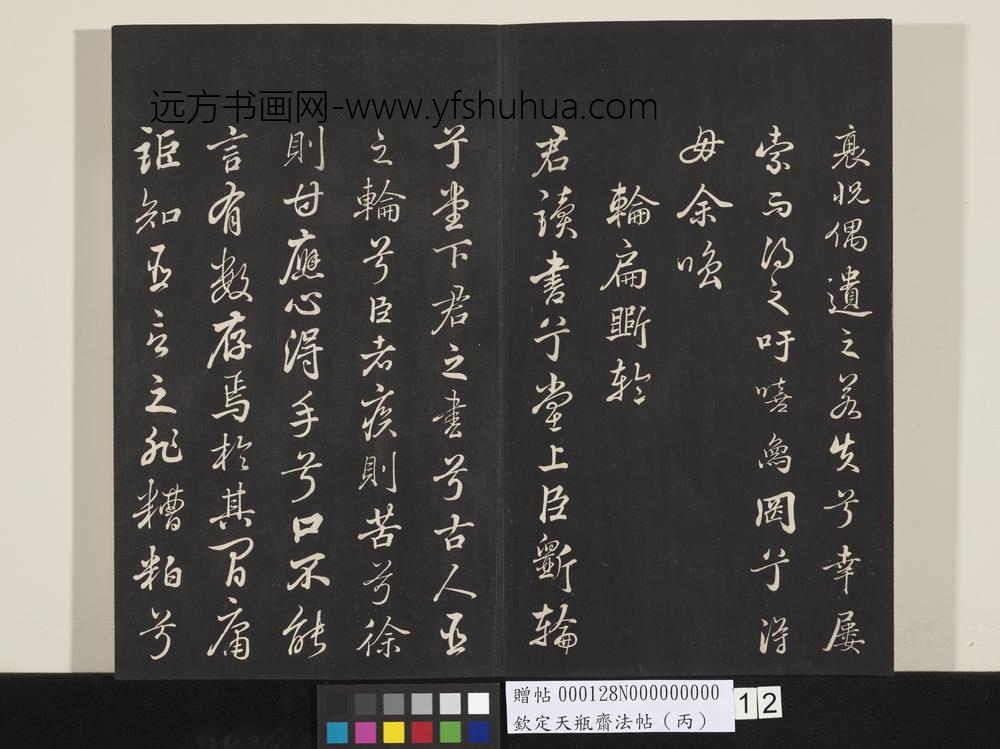 怳偶遺之若失兮幸屢
索而得之吁嘻象罔兮得
毋余
輪扁斲輪
君讀書兮堂上臣斲輪
兮堂下君之書兮古人臣
之輪兮臣老疾則苦兮徐
則甘應心得手兮口不能
言有數存焉於其間庸
詎知臣言之非糟粕兮
远方书画网-www.yfshuhua.com
贈帖 000128N000000000
欽定天瓶齋法帖（丙）
12